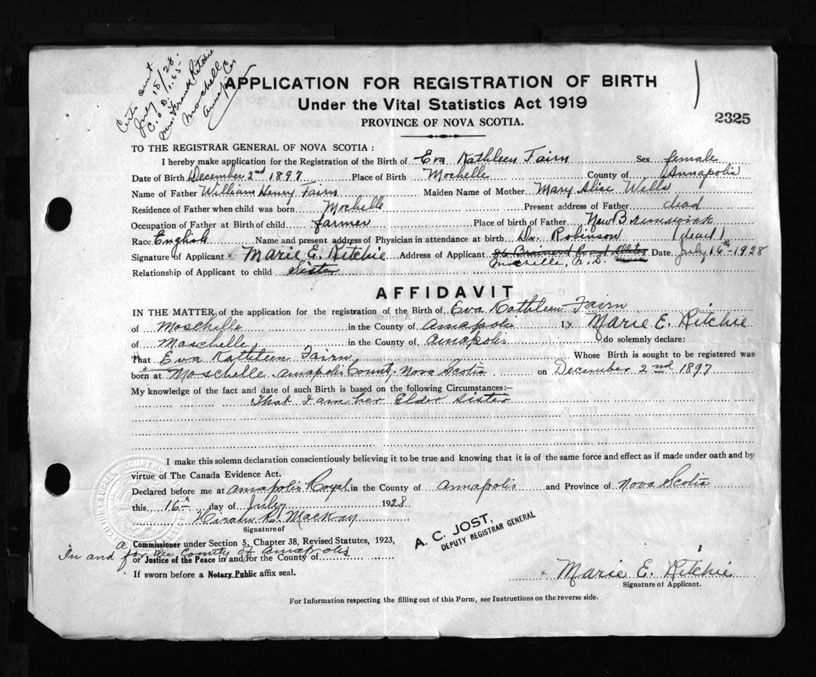 Certs sent
July 18/28.
C.O.D. 1.65
Mrs. Ritchie
Moschelle
Annapolis Co
APPLICATION FOR REGISTRATION OF BIRTH
Under the Vital Statistics Act 1919
PROVINCE OF NOVA SCOTIA.
2325
TO THE REGISTRAR GENERAL OF NOVA SCOTIA :
I hereby make application for the Registration of the Birth of Eva Kathleen Fairn Sex female
Date of Birth December 2nd 1897 Place of Birth Mochelle County of Annapolis
Name of Father William Henry Fairn Maiden Name of Mother Mary Alice Wells
Residence of Father when child was born Mochelle Present address of Father dead
Occupation of Father at Birth of child farmer Place of birth of Father New Brunswick
Race English Name and present address of Physician in attendance at birth Dr. Robinson (dead)
Signature of Applicant x Marie E. Ritchie Address of Applicant Date July 16th 1928
Relationship of Applicant to child Sister
AFFIDAVIT
IN THE MATTER of the application for the registration of the Birth of Eva Kathleen Fairn
of Moschelle in the County of Annapolis I, Marie E. Ritchie
of Moschelle in the County of Annapolis do solemnly declare:
That Eva Kathleen Fairn Whose Birth is sought to be registered was
born at Moschelle Annapolis County Nova Scotia on December 2nd 1897
My knowledge of the fact and date of such Birth is based on the following Circumstances:—
That I am her Elder Sister
I make this solemn declaration conscientiously believing it to be true and knowing that it is of the same force and effect as if made under oath and by
virtue of The Canada Evidence Act.
Declared before me at Annapolis Royal in the County of Annapolis and Province of Nova Scotia
this 16th day of July 1928
Hiram K. MacKay
Signature of
A. C. JOST,
DEPUTY REGISTRAR GENERAL
a Commissioner under Section 5, Chapter 38, Revised Statutes, 1923,
In and for the County of Annapolis
or Justice of the Peace in and for the County of
If sworn before a Notary Public affix seal.
x Marie E. Ritchie
Signature of Applicant.
For Information respecting the filling out of this Form, see Instructions on the reverse side.